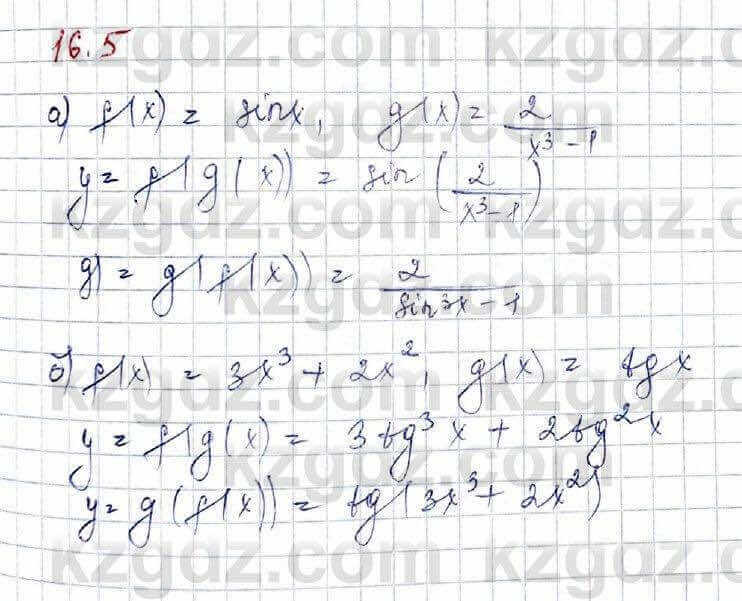 16.5
а) f(x) = sin x, g(x) = 2/(x³ - 1)
y = f(g(x)) = sin(2/(x³ - 1))
y) = g(f(x)) = 2/(sin³x - 1)
б) f(x) = 3x³ + 2x², g(x) = tg x
y = f(g(x) = 3tg³x + 2tg²x
y = g(f(x)) = tg(3x³ + 2x²)
kzgdz.com
kzgdz.com
kzgdz.com
kzgdz.com
kzgdz.com
kzgdz.com